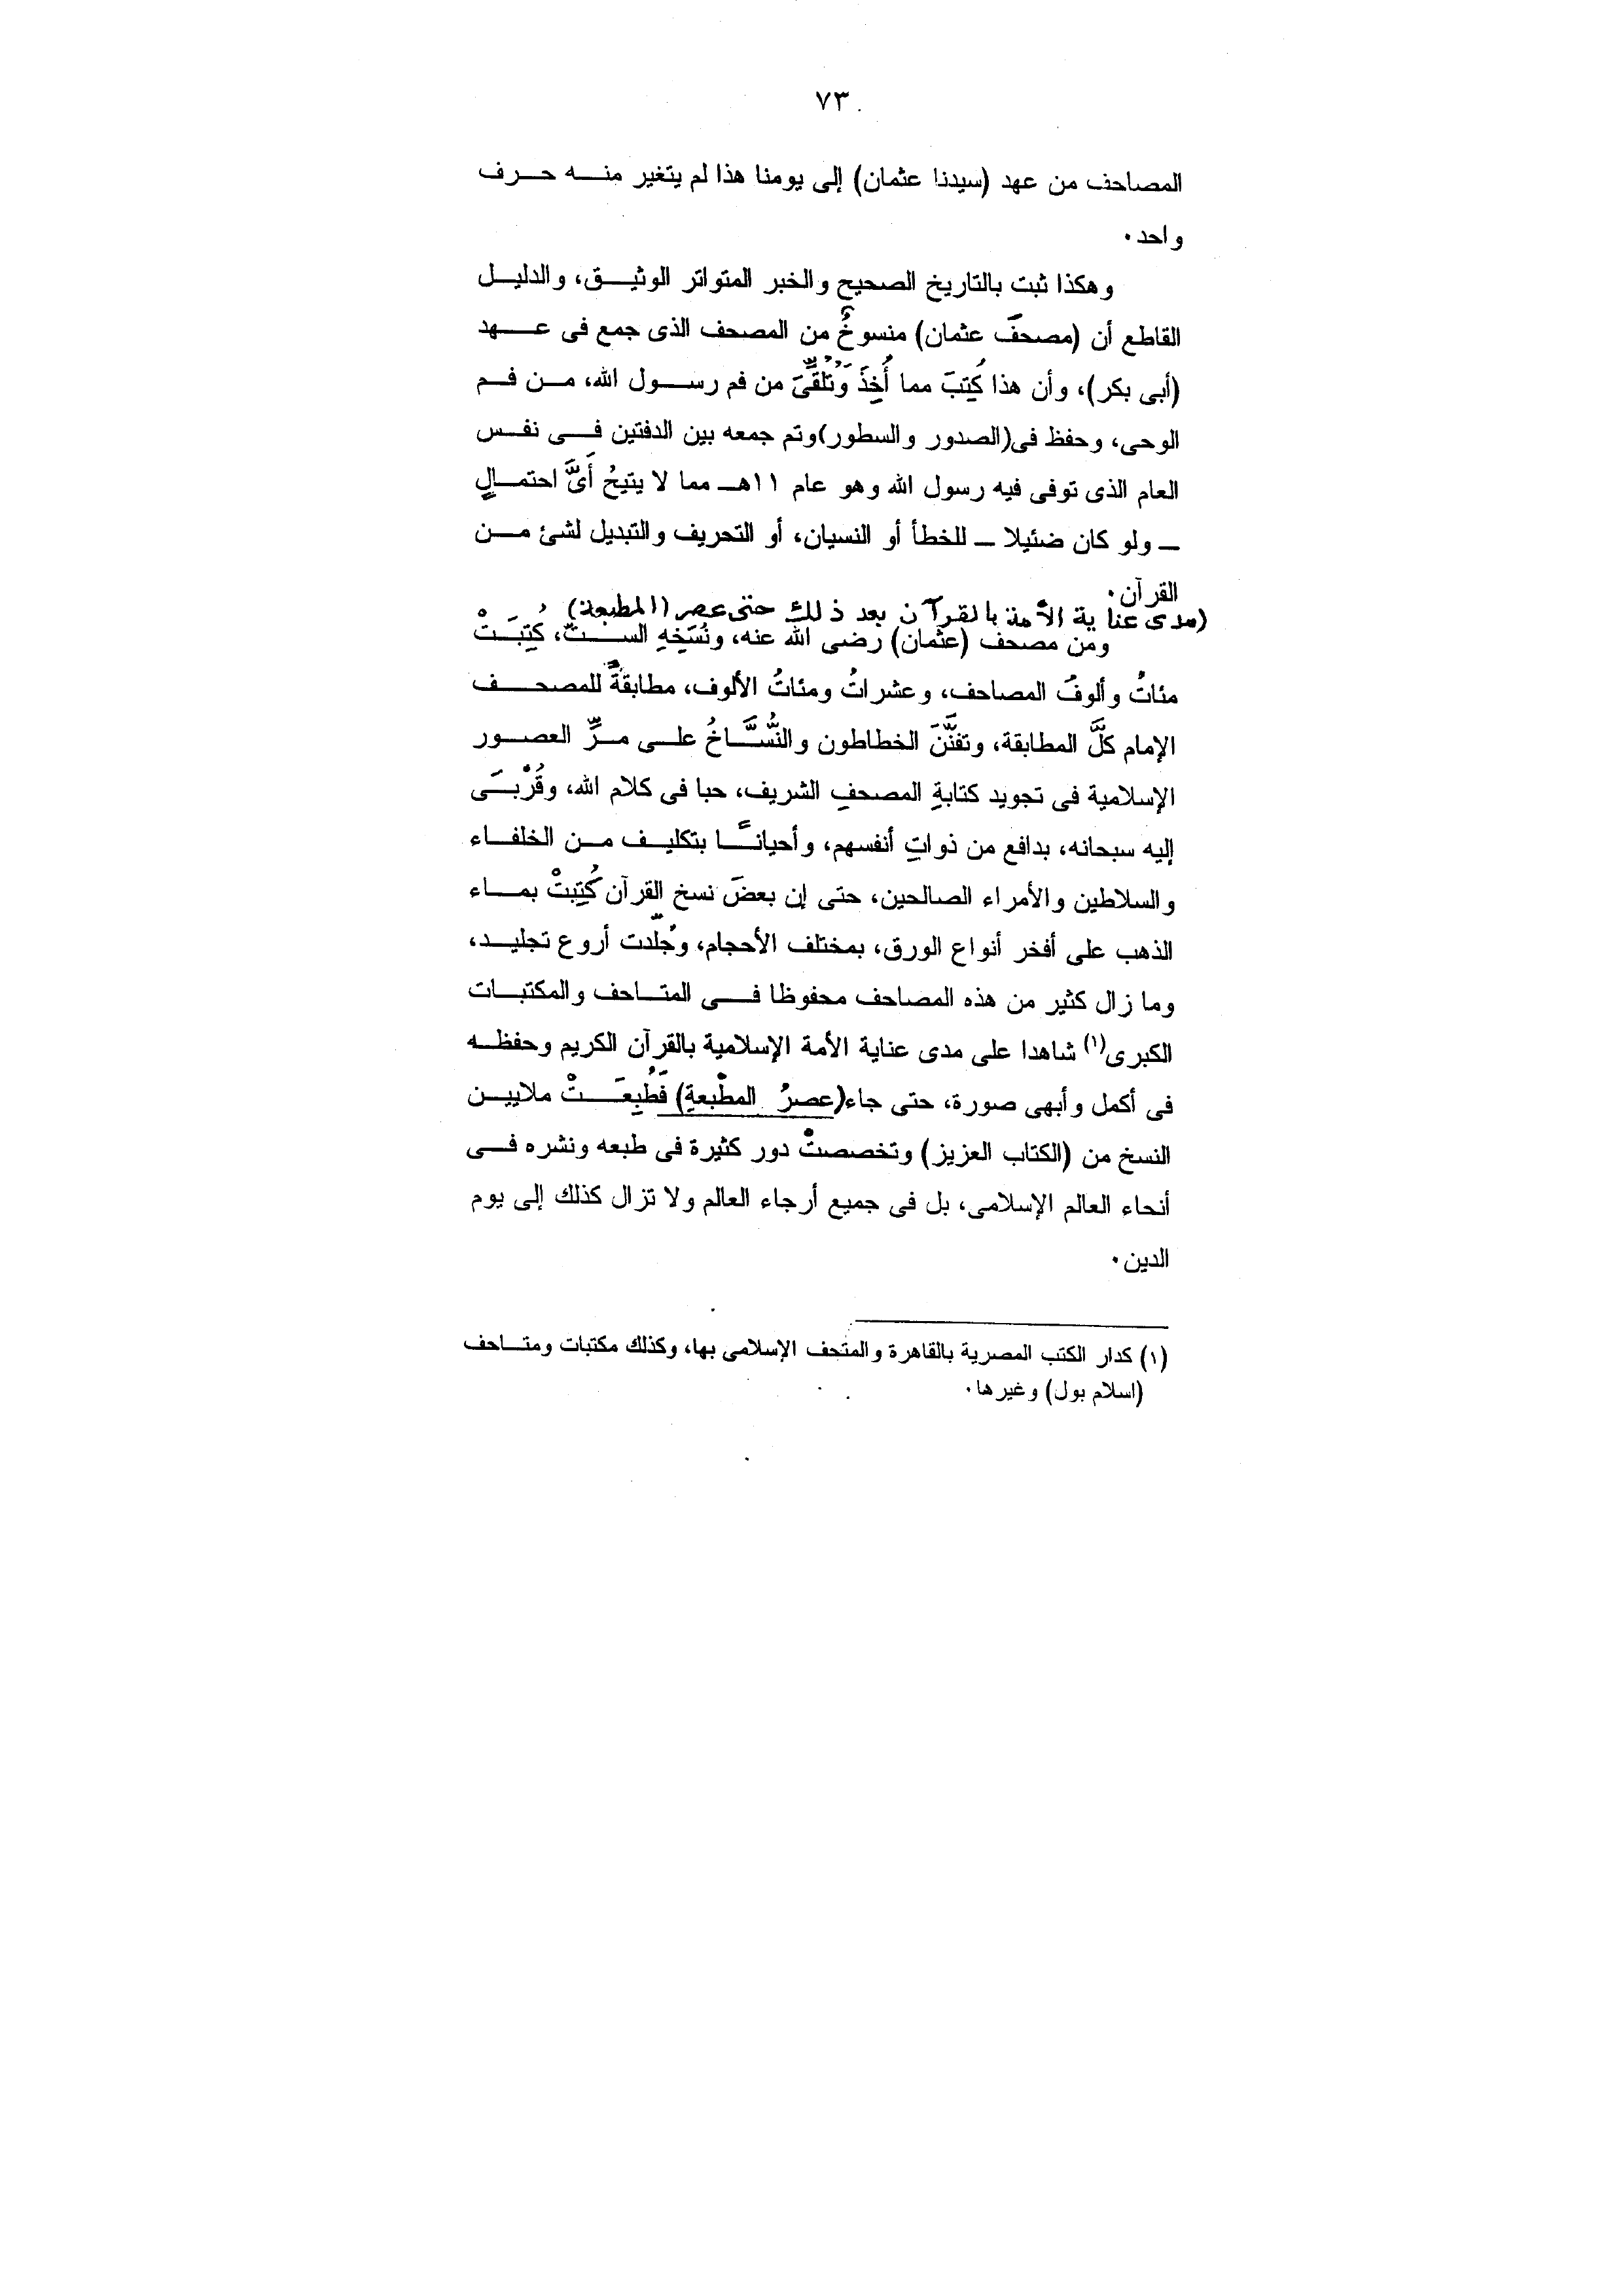 ٧٣
المصاحف من عهد (سيدنا عثمان) إلى يومنا هذا لم يتغير منه حرف
واحد.
وهكذا ثبت بالتاريخ الصحيح والخبر المتواتر الوثيق، والدليل
القاطع أن (مصحفَ عثمان) منسوخٌ من المصحف الذى جمع فى عهد
(أبى بكر)، وأن هذا كُتِبَ مما أُخِذَ وَتُلُقِّىَ من فم رسول الله، من فم
الوحى، وحفظ فى(الصدور والسطور)وتم جمعه بين الدفتين فى نفس
العام الذى توفى فيه رسول الله وهو عام ١١هـ مما لا يتيحُ أَىَّ احتمالٍ
ـ ولو كان ضئيلا ـ للخطأ أو النسيان، أو التحريف والتبديل لشئ من
القرآن.
(مدى عناية الأمة بالقرآن بعد ذلك حتى عصر (المطبعة)
ومن مصحف (عثمان) رضى الله عنه، ونُسَخِهِ الستِّ، كُتِبَتْ
مئاتُ وألوفُ المصاحف، وعشراتُ ومئاتُ الألوف، مطابقةً للمصحف
الإمام كلَّ المطابقة، وتفنَّنَ الخطاطون والنُّسَّاخُ على مرِّ العصور
الإسلامية فى تجويد كتابةِ المصحفِ الشريف، حبا فى كلام الله، وقُرْبَى
إليه سبحانه، بدافع من ذواتِ أنفسهم، وأحيانًا بتكليف من الخلفاء
والسلاطين والأمراء الصالحين، حتى إن بعضَ نسخ القرآن كُتِبتْ بماء
الذهب على أفخر أنواع الورق، بمختلف الأحجام، وجُلِّدت أروع تجليد،
وما زال كثير من هذه المصاحف محفوظا فى المتاحف والمكتبات
الكبرى(١) شاهدا على مدى عناية الأمة الإسلامية بالقرآن الكريم وحفظه
فى أكمل وأبهى صورة، حتى جاء(عصرُ المطْبعةِ) فَطُبِعَتْ ملايين
النسخ من (الكتاب العزيز) وتخصصتْ دور كثيرة فى طبعه ونشره فى
أنحاء العالم الإسلامى، بل فى جميع أرجاء العالم ولا تزال كذلك إلى يوم
الدين.
(١) كدار الكتب المصرية بالقاهرة والمتحف الإسلامى بها، وكذلك مكتبات ومتاحف
(اسلام بول) وغيرها.